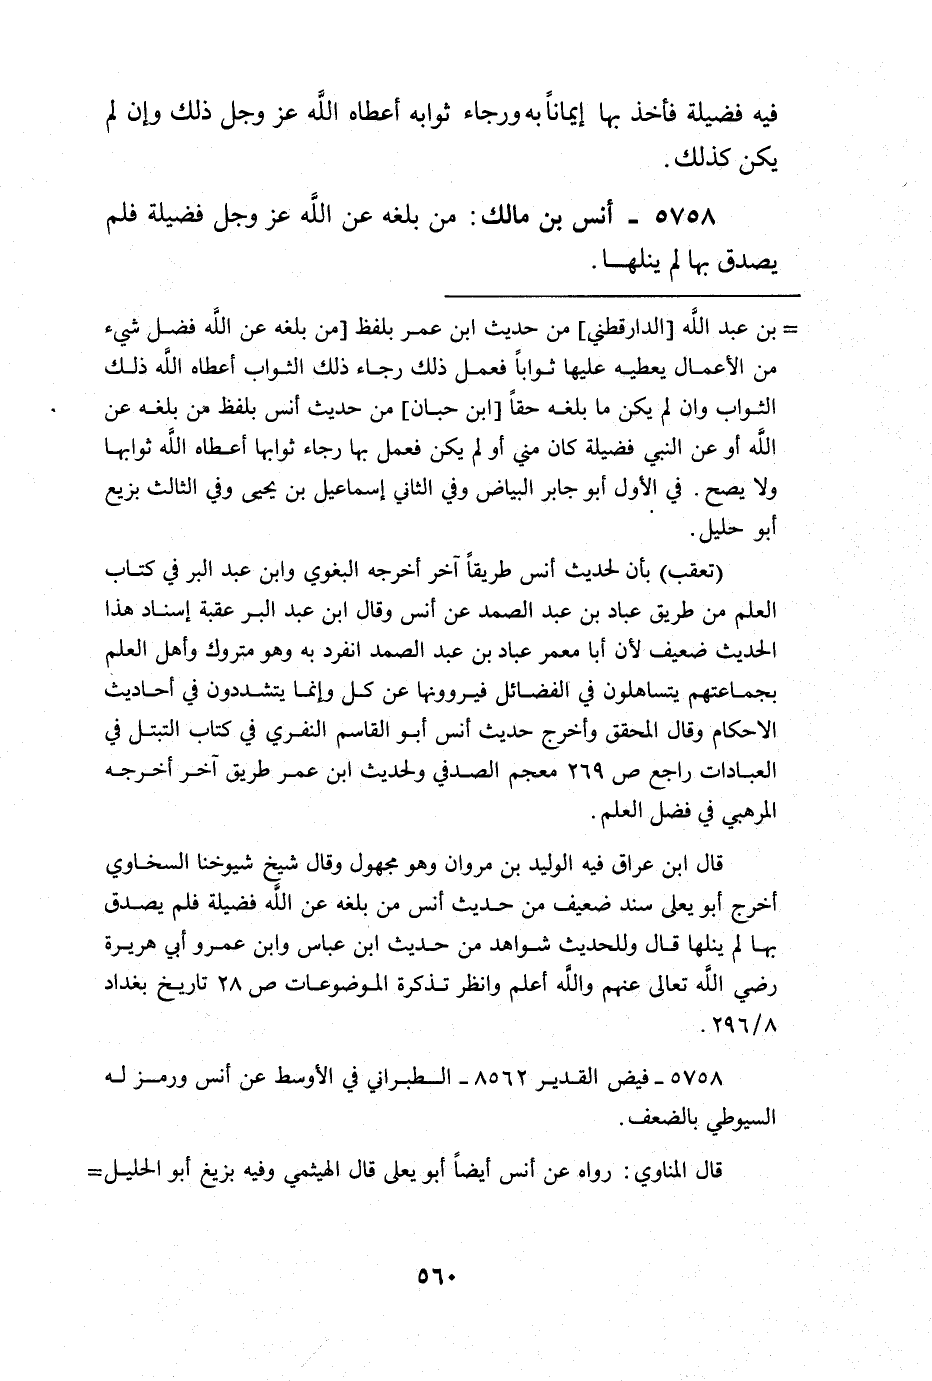 فيه فضيلة فأخذ بها إيماناً به ورجاء ثوابه أعطاه الله عز وجل ذلك وإن لم
يكن كذلك .
٥٧٥٨ ـ أنس بن مالك : من بلغه عن الله عز وجل فضيلة فلم
يصدق بها لم ينلهـا .
= بن عبد الله [الدارقطني] من حديث ابن عمر بلفظ [من بلغه عن الله فضل شيء
من الأعمال يعطيه عليها ثواباً فعمل ذلك رجاء ذلك الثواب أعطاه الله ذلك
الثواب وان لم يكن ما بلغه حقاً [ابن حبان] من حديث أنس بلفظ من بلغه عن
الله أو عن النبي فضيلة كان مني أو لم يكن فعمل بها رجاء ثوابها أعطاه الله ثوابها
ولا يصح . في الأول أبو جابر البياض وفي الثاني إسماعيل بن يحيى وفي الثالث بزيع
أبو خليل .
(تعقب) بأن لحديث أنس طريقاً آخر أخرجه البغوي وابن عبد البر في كتاب
العلم من طريق عباد بن عبد الصمد عن أنس وقال ابن عبد البر عقبة إسناد هذا
الحديث ضعيف لأن أبا معمر عباد بن عبد الصمد انفرد به وهو متروك وأهل العلم
بجماعتهم يتساهلون في الفضائل فيروونها عن كل وإنما يتشددون في أحاديث
الاحكام وقال المحقق وأخرج حديث أنس أبو القاسم النفري في كتاب التبتل في
العبادات راجع ص ٢٦٩ معجم الصدفي ولحديث ابن عمر طريق آخر أخرجه
المرهبي في فضل العلم .
قال ابن عراق فيه الوليد بن مروان وهو مجهول وقال شيخ شيوخنا السخاوي
أخرج أبو يعلى سند ضعيف من حديث أنس من بلغه عن الله فضيلة فلم يصدق
بها لم ينلها قال وللحديث شواهد من حديث ابن عباس وابن عمرو أبي هريرة
رضي الله تعالى عنهم والله أعلم وانظر تذكرة الموضوعات ص ٢٨ تاريخ بغداد
٢٩٦/٨ .
٥٧٥٨ ـ فيض القدير ٨٥٦٢ ـ الطبراني في الأوسط عن أنس ورمز له
السيوطي بالضعف .
قال المناوي : رواه عن أنس أيضاً أبو يعلى قال الهيثمي وفيه بزيغ أبو الخليل =
٥٦٠